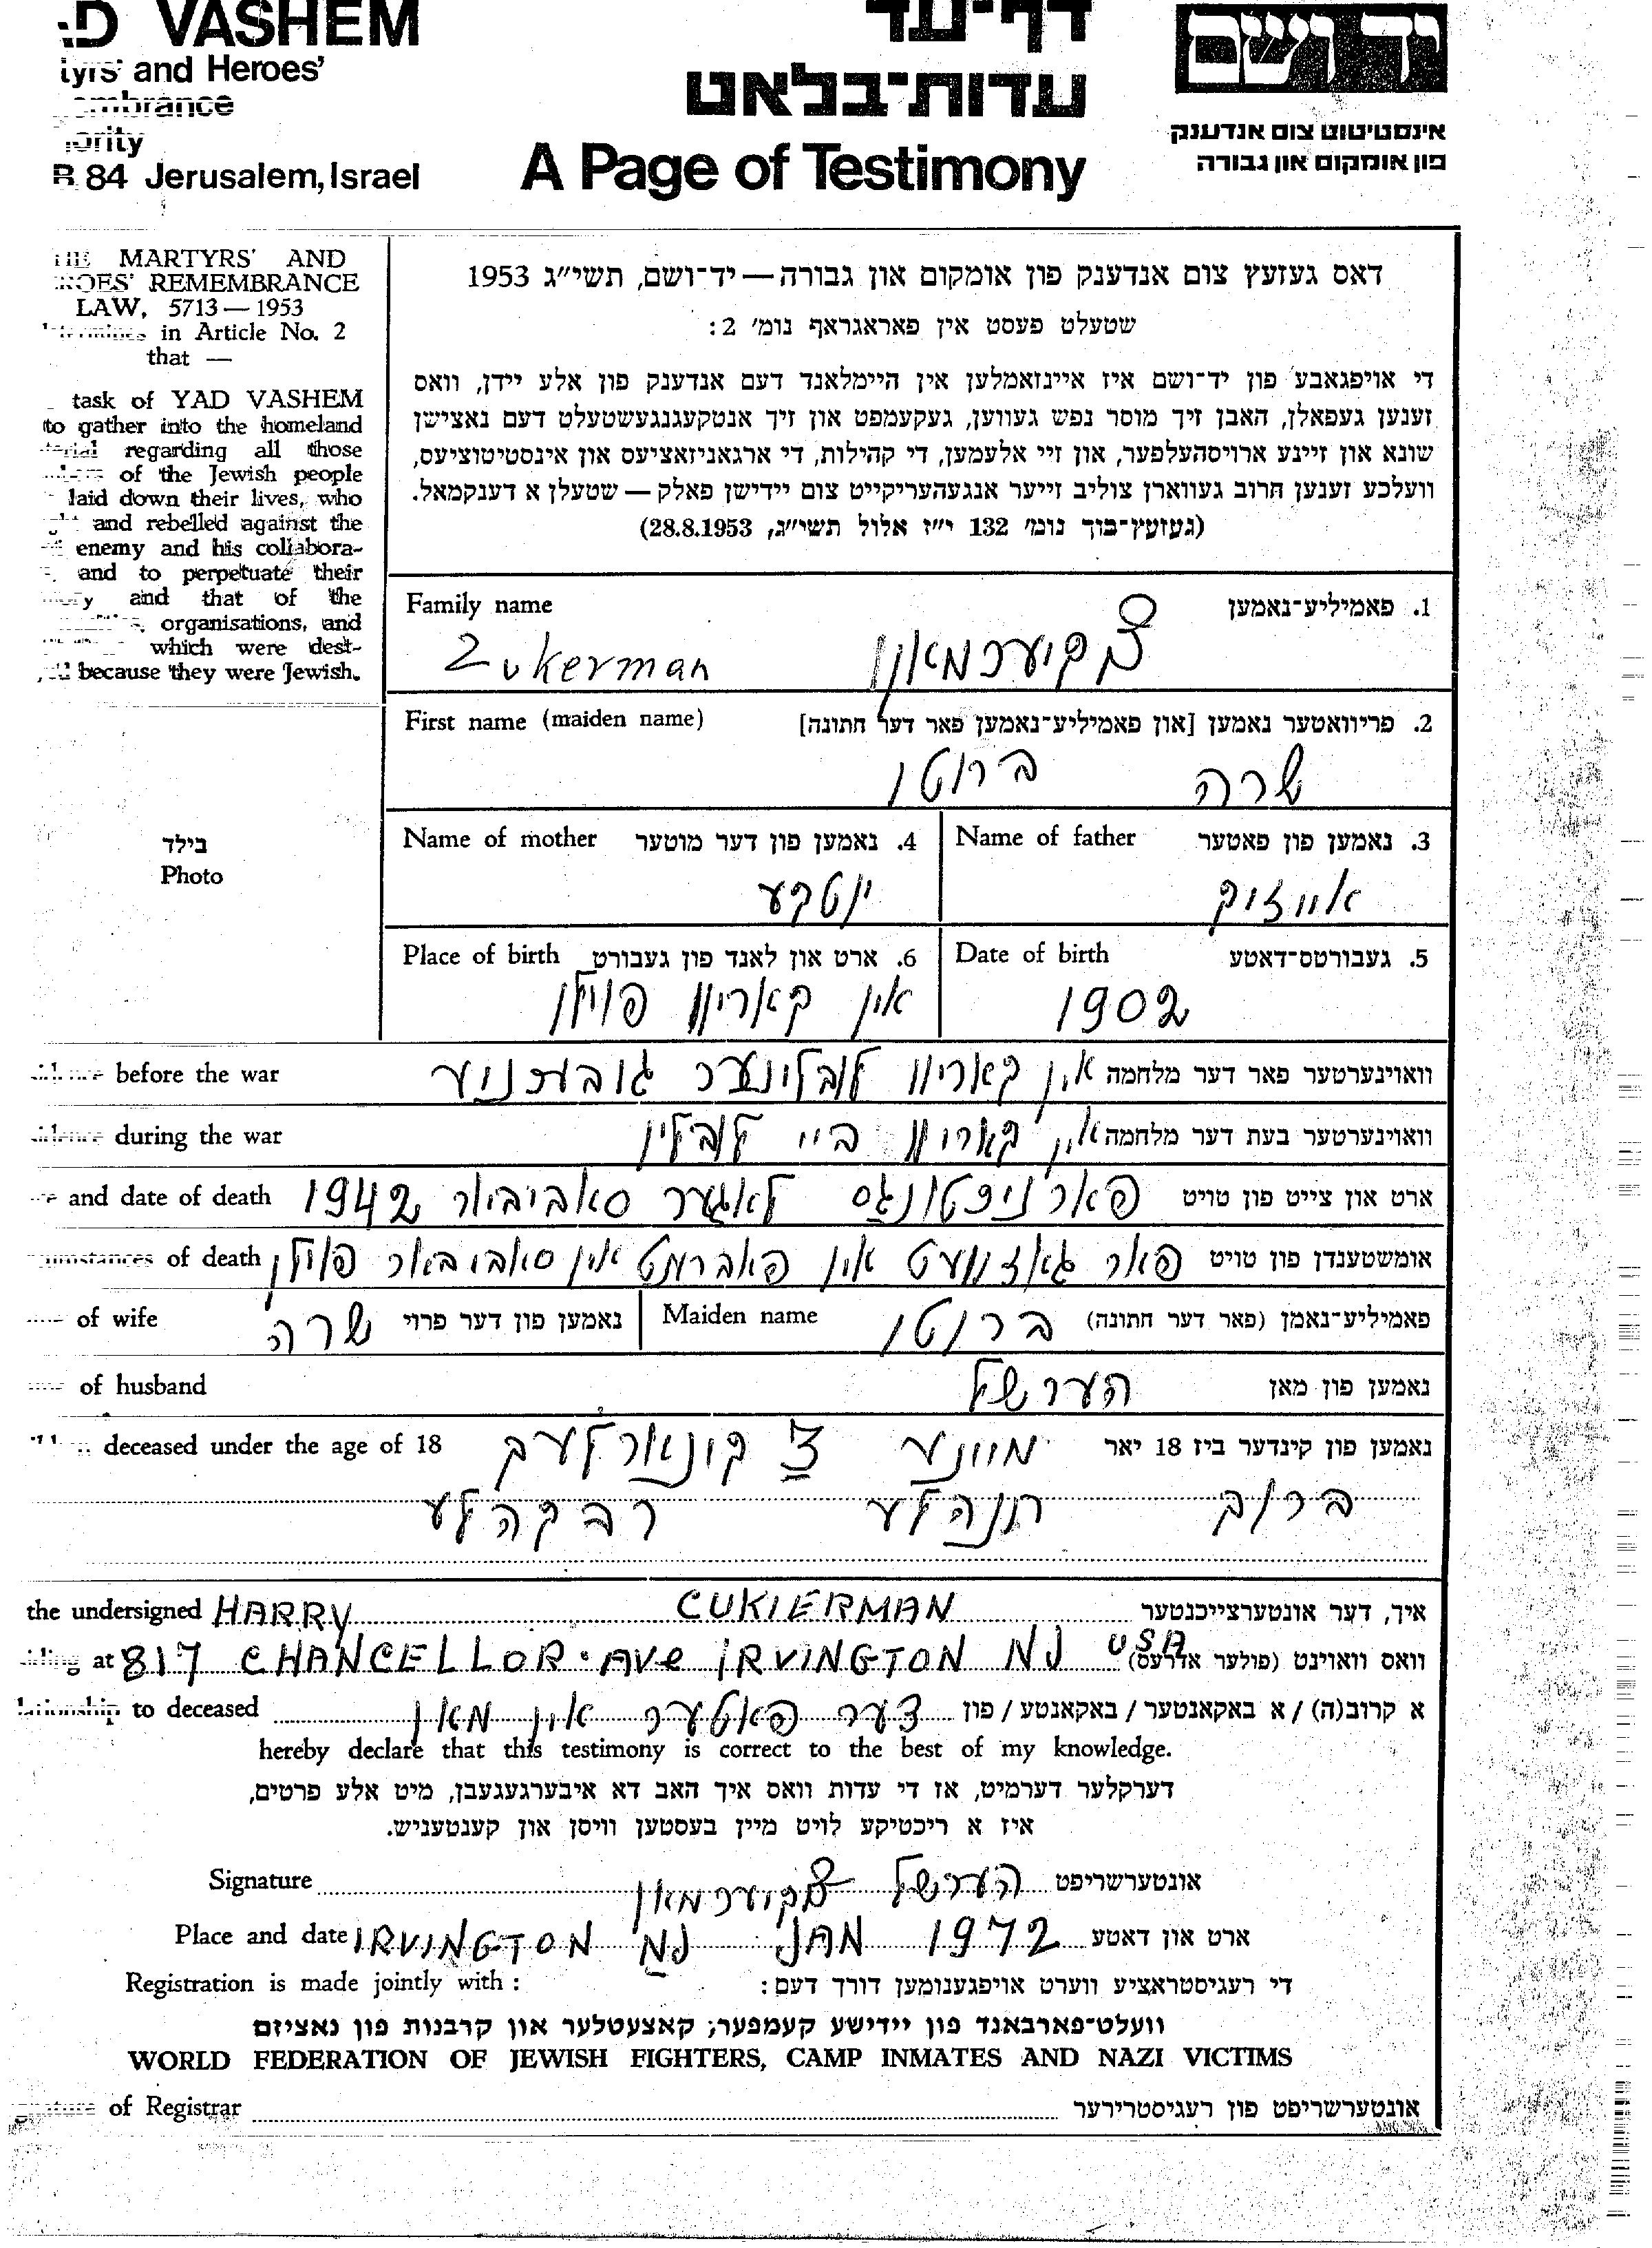 VASHEM
דף־עד
יד ושם
and Heroes'
עדות־בלאט
אינסטיטוט צום אנדענק
פון אומקום און גבורה
84 Jerusalem, Israel
A Page of Testimony
MARTYRS' AND
REMEMBRANCE
LAW, 5713 — 1953
in Article No. 2
that —
task of YAD VASHEM
to gather into the homeland
regarding all those
of the Jewish people
laid down their lives, who
and rebelled against the
enemy and his collabora-
and to perpetuate their
and that of the
organisations, and
which were dest-
because they were Jewish.
דאס געזעץ צום אנדענק פון אומקום און גבורה — יד־ושם, תשי״ג 1953
שטעלט פעסט אין פאראגראף נומ׳ 2:
די אויפגאבע פון יד־ושם איז איינזאמלען אין היימלאנד דעם אנדענק פון אלע יידן, וואס
זענען געפאלן, האבן זיך מוסר נפש געווען, געקעמפט און זיך אנטקעגנגעשטעלט דעם נאצישן
שונא און זיינע ארויסהעלפער, און זיי אלעמען, די קהילות, די ארגאניזאציעס און אינסטיטוציעס,
וועלכע זענען חרוב געווארן צוליב זייער אנגעהעריקייט צום יידישן פאלק — שטעלן א דענקמאל.
(געזעץ־בוך נומ׳ 132 י״ז אלול תשי״ג, 28.8.1953)
Family name
1. פאמיליע־נאמען
Zukerman
צוקערמאן
First name (maiden name)
2. פריוואטער נאמען [און פאמיליע־נאמען פאר דער חתונה]
שרה ברוטן
Name of mother 4. נאמען פון דער מוטער
Name of father 3. נאמען פון פאטער
יטקע
אייזיק
Place of birth 6. ארט און לאנד פון געבורט
Date of birth 5. געבורטס־דאטע
אין פוילן
1902
before the war
וואוינערטער פאר דער מלחמה אין לובלינער
during the war
וואוינערטער בעת דער מלחמה אין ביי לובלין
and date of death
ארט און צייט פון טויט פארניכטונגס לאגער סאביבאר 1942
of death
אומשטענדן פון טויט פאר אין סאביבאר פוילן
of wife נאמען פון דער פרוי שרה
Maiden name פאמיליע־נאמן (פאר דער חתונה) ברוטן
of husband
נאמען פון מאן הערשל
deceased under the age of 18
נאמען פון קינדער ביז 18 יאר
חנהלע רבקהלע
בילד
Photo
the undersigned HARRY CUKIERMAN איך, דער אונטערצייכנטער
at 817 CHANCELLOR · AVe IRVINGTON NJ USA וואס וואוינט (פולער אדרעס)
to deceased דער פאטער און מאן א קרוב(ה) / א באקאנטער / באקאנטע / פון
hereby declare that this testimony is correct to the best of my knowledge.
דערקלער דערמיט, אז די עדות וואס איך האב דא איבערגעגעבן, מיט אלע פרטים,
איז א ריכטיקע לויט מיין בעסטען וויסן און קענטעניש.
Signature הערשל צוקערמאן אונטערשריפט
Place and date IRVINGTON NJ JAN 1972 ארט און דאטע
Registration is made jointly with :
די רעגיסטראציע ווערט אויפגענומען דורך דעם:
וועלט־פארבאנד פון יידישע קעמפער; קאצעטלער און קרבנות פון נאציזם
WORLD FEDERATION OF JEWISH FIGHTERS, CAMP INMATES AND NAZI VICTIMS
of Registrar אונטערשריפט פון רעגיסטרירער